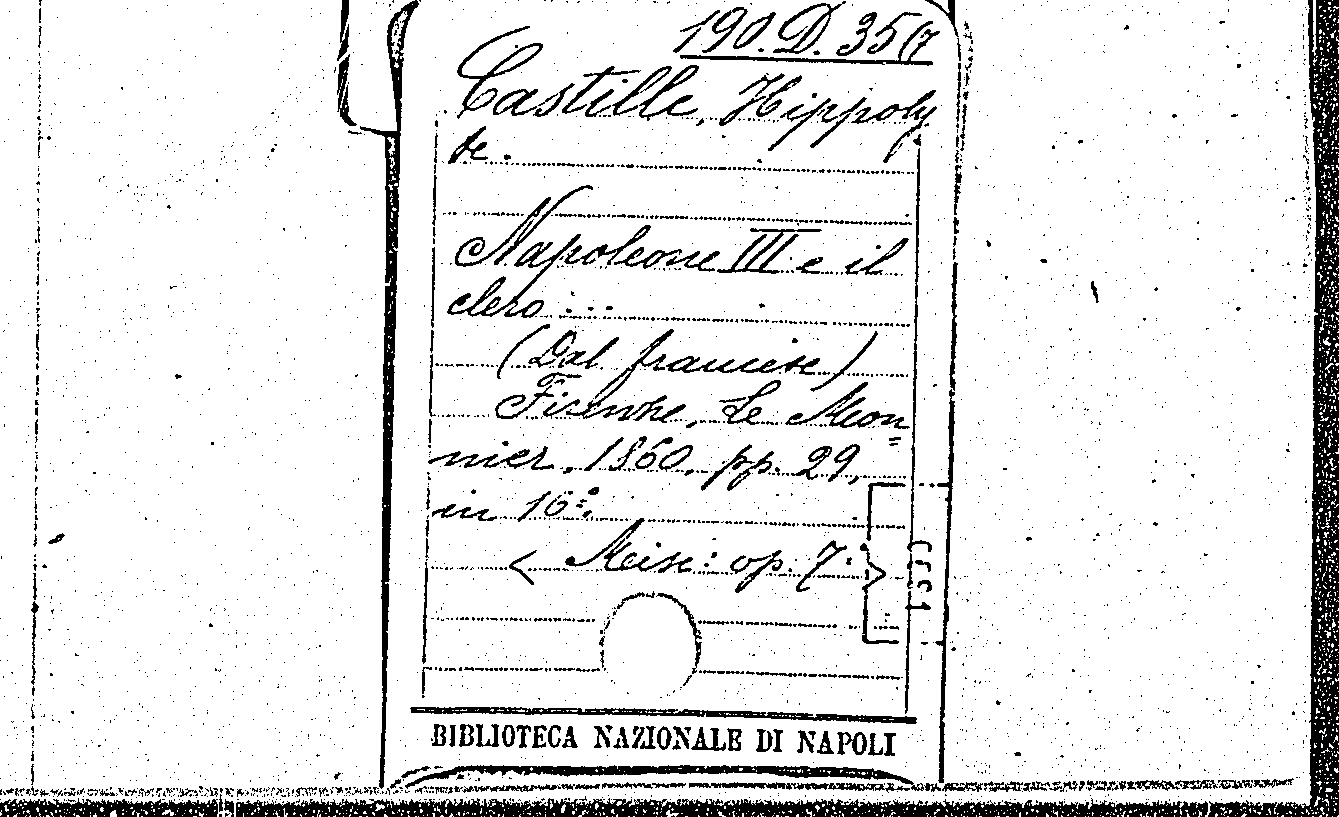 190.D.35(7
Castille, Hippoly
te.
Napoleone III e il
clero ...
(Dal francese)
Firenze, Le Mon
=
nier, 1860, pp. 29,
in 16°.
< Misc: op. 7. >
BIBLIOTECA NAZIONALE DI NAPOLI